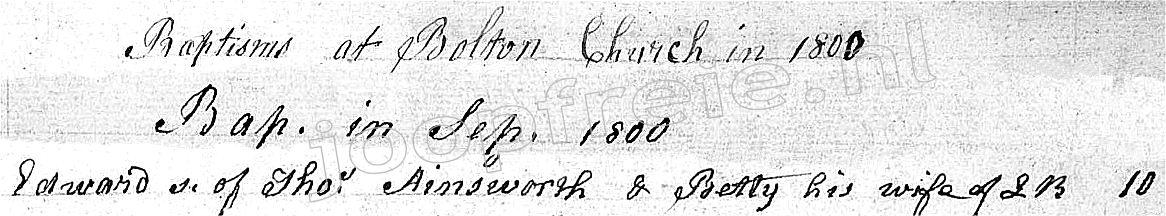 Baptisms at Bolton Church in 1800
Bap. in Sep. 1800
joopfreie.nl
Edward s. of Thos. Ainsworth & Betty his wife of L B 10